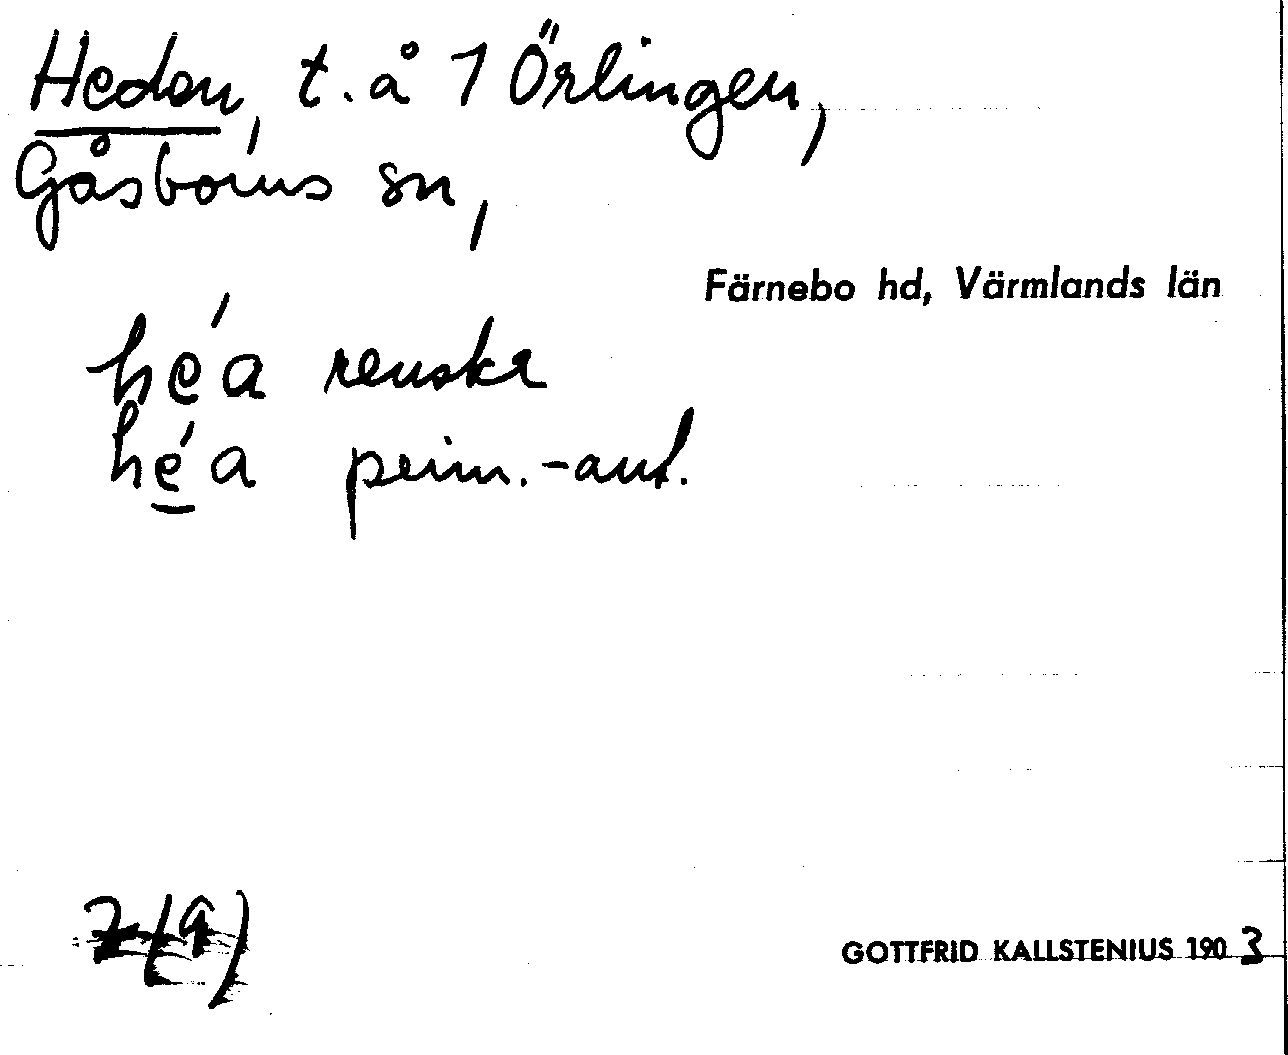 Heden, t. å 1 Örlingen,
Gåsborns sn,
Färnebo hd, Värmlands län
he´a renskr
he̲´a prim.-ant.
GOTTFRID KALLSTENIUS 1903